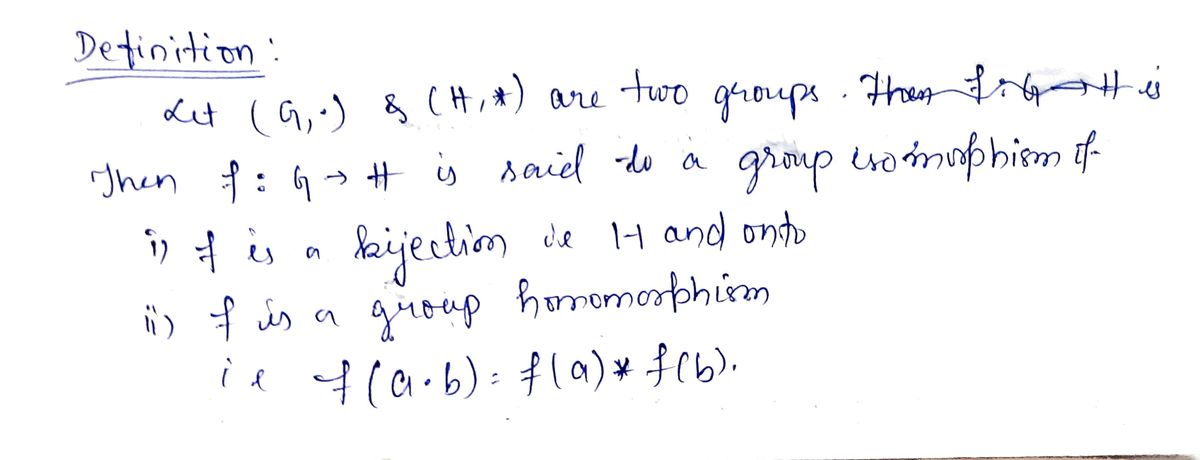 Definition :
Let (G,·) & (H,*) are two groups. Then f:G→H is
Then f : G → H is said to a group isomorphism if
i) f is a bijection ie 1-1 and onto
ii) f is a group homomorphism
ie f(a·b) = f(a) * f(b).